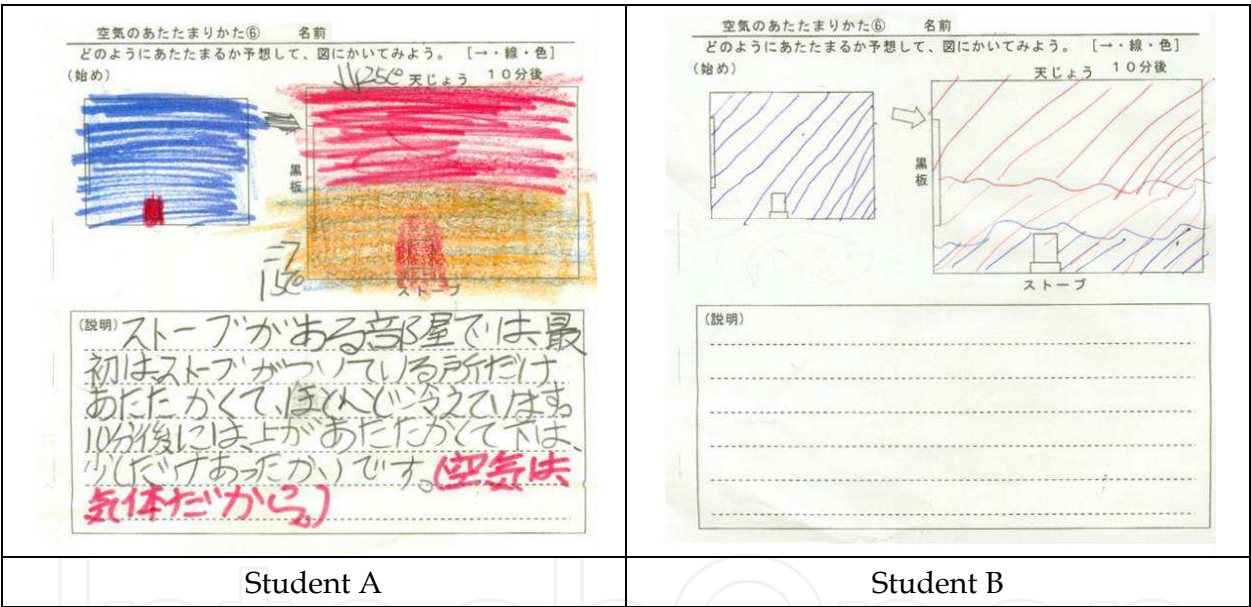 空気のあたたまりかた⑥ 名前
どのようにあたたまるか予想して、図にかいてみよう。 [→・線・色]
(始め)
25C°
天じょう 10分後
黒板
15C°
ストーブ
(説明)ストーブがある部屋では、最
初はストーブがついている所だけ
あたたかくて、ほとんど冷えています。
10分後には、上があたたかくて下は、
少しだけあったかいです。(空気は、
気体だから。)
Student A
空気のあたたまりかた⑥ 名前
どのようにあたたまるか予想して、図にかいてみよう。 [→・線・色]
(始め)
天じょう 10分後
黒板
ストーブ
(説明)
Student B